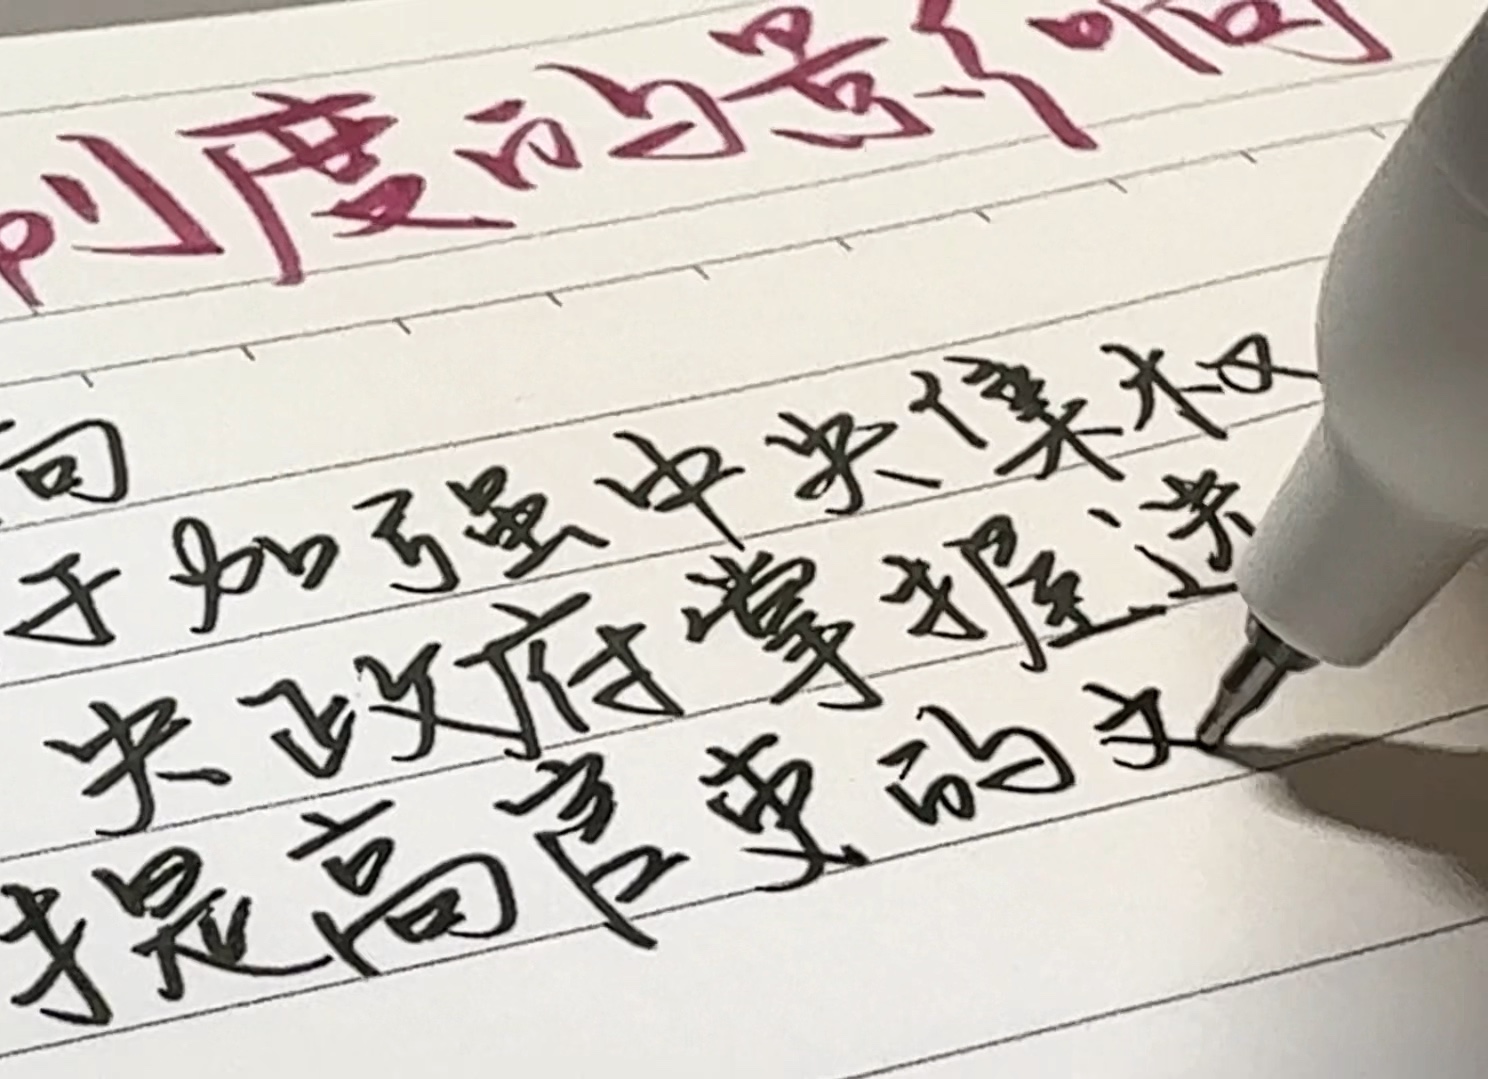 制度的影响
向
于加强中央集权
央政府掌握选
提高官吏的文